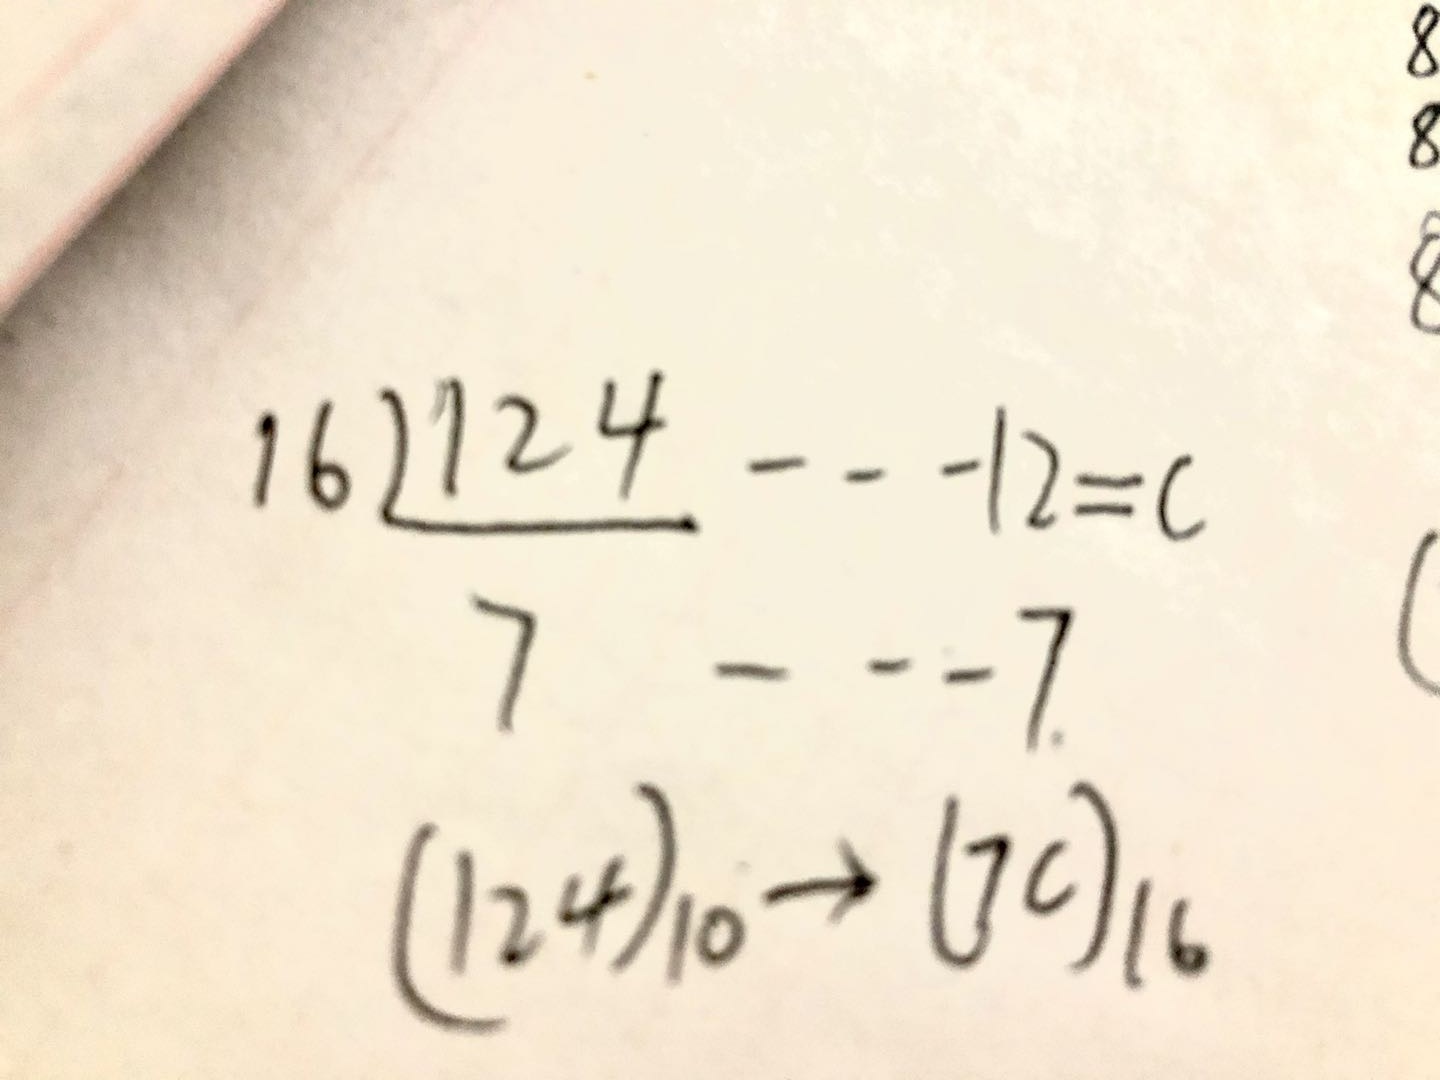 8
8
8
16)124 - - -12=C
7 - - -7
(124)10→(7C)16